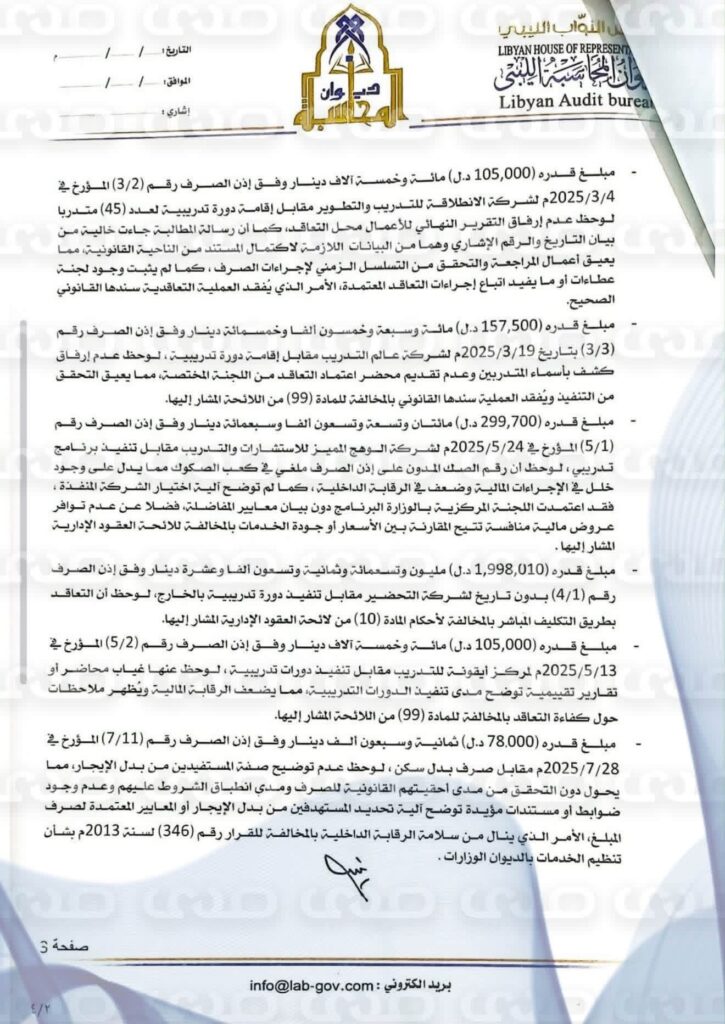 النواب الليبي
LIBYAN HOUSE OF REPRESENT
ديوان المحاسبة الليبي
Libyan Audit bureau
ديوان
المحاسبة
التاريخ : ..... / ..... / ..... م
الموافق : ..... / ..... / .....
إشاري :
- مبلغ قدره (105,000 د.ل) مائة وخمسة آلاف دينار وفق إذن الصرف رقم (3/2) المؤرخ في
2025/3/4م لشركة الانطلاقة للتدريب والتطوير مقابل إقامة دورة تدريبية لعدد (45) متدربا
لوحظ عدم إرفاق التقرير النهائي للأعمال محل التعاقد، كما أن رسالة المطالبة جاءت خالية من
بيان التاريخ والرقم الإشاري وهما من البيانات اللازمة لاكتمال المستند من الناحية القانونية، مما
يعيق أعمال المراجعة والتحقق من التسلسل الزمني لإجراءات الصرف ، كما لم يثبت وجود لجنة
عطاءات أو ما يفيد اتباع إجراءات التعاقد المعتمدة، الأمر الذي يُفقد العملية التعاقدية سندها القانوني
الصحيح.
- مبلغ قدره (157,500 د.ل) مائة وسبعة وخمسون ألفا وخمسمائة دينار وفق إذن الصرف رقم
(3/3) بتاريخ 2025/3/19م لشركة عالم التدريب مقابل إقامة دورة تدريبية ، لوحظ عدم إرفاق
كشف بأسماء المتدربين وعدم تقديم محضر اعتماد التعاقد من اللجنة المختصة، مما يعيق التحقق
من التنفيذ ويُفقد العملية سندها القانوني بالمخالفة للمادة (99) من اللائحة المشار إليها.
- مبلغ قدره (299,700 د.ل) مائتان وتسعة وتسعون ألفا وسبعمائة دينار وفق إذن الصرف رقم
(5/1) المؤرخ في 2025/5/24م لشركة الوهج المميز للاستشارات والتدريب مقابل تنفيذ برنامج
تدريبي ، لوحظ أن رقم الصك المدون على إذن الصرف ملغي في كعب الصكوك مما يدل على وجود
خلل في الإجراءات المالية وضعف في الرقابة الداخلية ، كما لم توضح آلية اختيار الشركة المنفذة ،
فقد اعتمدت اللجنة المركزية بالوزارة البرنامج دون بيان معايير المفاضلة، فضلا عن عدم توافر
عروض مالية منافسة تتيح المقارنة بين الأسعار أو جودة الخدمات بالمخالفة للائحة العقود الإدارية
المشار إليها .
- مبلغ قدره (1,998,010 د.ل) مليون وتسعمائة وثمانية وتسعون ألفا وعشرة دينار وفق إذن الصرف
رقم (4/1) بدون تاريخ لشركة التحضير مقابل تنفيذ دورة تدريبية بالخارج، لوحظ أن التعاقد
بطريق التكليف المباشر بالمخالفة لأحكام المادة (10) من لائحة العقود الإدارية المشار إليها.
- مبلغ قدره (105,000 د.ل) مائة وخمسة آلاف دينار وفق إذن الصرف رقم (5/2) المؤرخ في
2025/5/13م لمركز أيقونة للتدريب مقابل تنفيذ دورات تدريبية ، لوحظ عنها غياب محاضر أو
تقارير تقييمية توضح مدى تنفيذ الدورات التدريبية، مما يضعف الرقابة المالية ويُظهر ملاحظات
حول كفاءة التعاقد بالمخالفة للمادة (99) من اللائحة المشار إليها.
- مبلغ قدره (78,000 د.ل) ثمانية وسبعون ألف دينار وفق إذن الصرف رقم (7/11) المؤرخ في
2025/7/28م مقابل صرف بدل سكن ، لوحظ عدم توضيح صفة المستفيدين من بدل الإيجار، مما
يحول دون التحقق من مدى أحقيتهم القانونية للصرف ومدي انطباق الشروط عليهم وعدم وجود
ضوابط أو مستندات مؤيدة توضح آلية تحديد المستهدفين من بدل الإيجار أو المعايير المعتمدة لصرف
المبلغ، الأمر الذي ينال من سلامة الرقابة الداخلية بالمخالفة للقرار رقم (346) لسنة 2013م بشأن
تنظيم الخدمات بالديوان الوزارات .
صفحة 3
بريد الكتروني : info@lab-gov.com
٤/٢